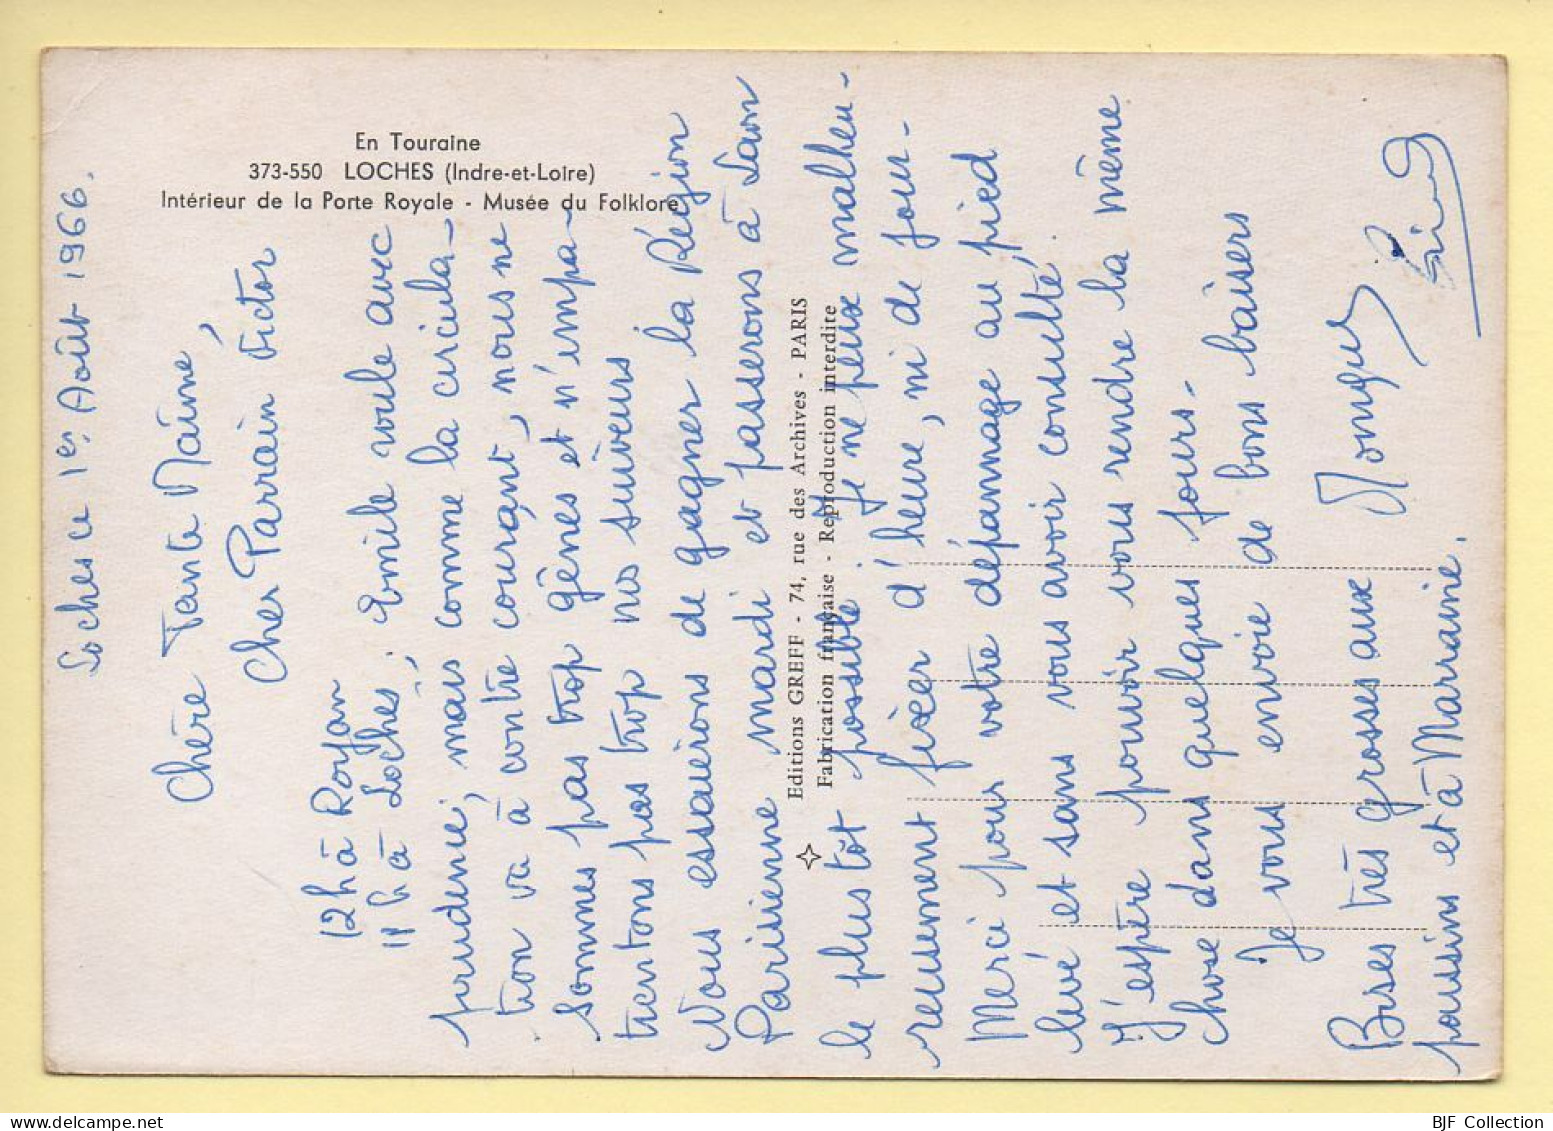 En Touraine
373-550 LOCHES (Indre-et-Loire)
Intérieur de la Porte Royale - Musée du Folklore
Editions GREFF - 74, rue des Archives - PARIS
Fabrication française - Reproduction interdite
Loches ce 1er Août 1966.
Chère Tante Naimé,
Cher Parrain Victor
12h à Royan
11h à Loches; Emile roule avec
prudence, mais comme la circula-
tion va à contre courant, nous ne
sommes pas trop gênes et n'impa-
tientons pas trop nos suiveurs
Nous essaierons de gagner la Région
Parisienne mardi et passerons à Laon
le plus tôt possible. Je ne peux malheu-
reusement fixer d'heure, ni de jour-
Merci pour votre dépannage au pied
levé et sans vous avoir consulté.
J'espère pouvoir vous rendre la même
chose dans quelques jours-
Je vous envoie de bons baisers
Bises très grosses aux
poussins et à Marraine.
BJF Collection